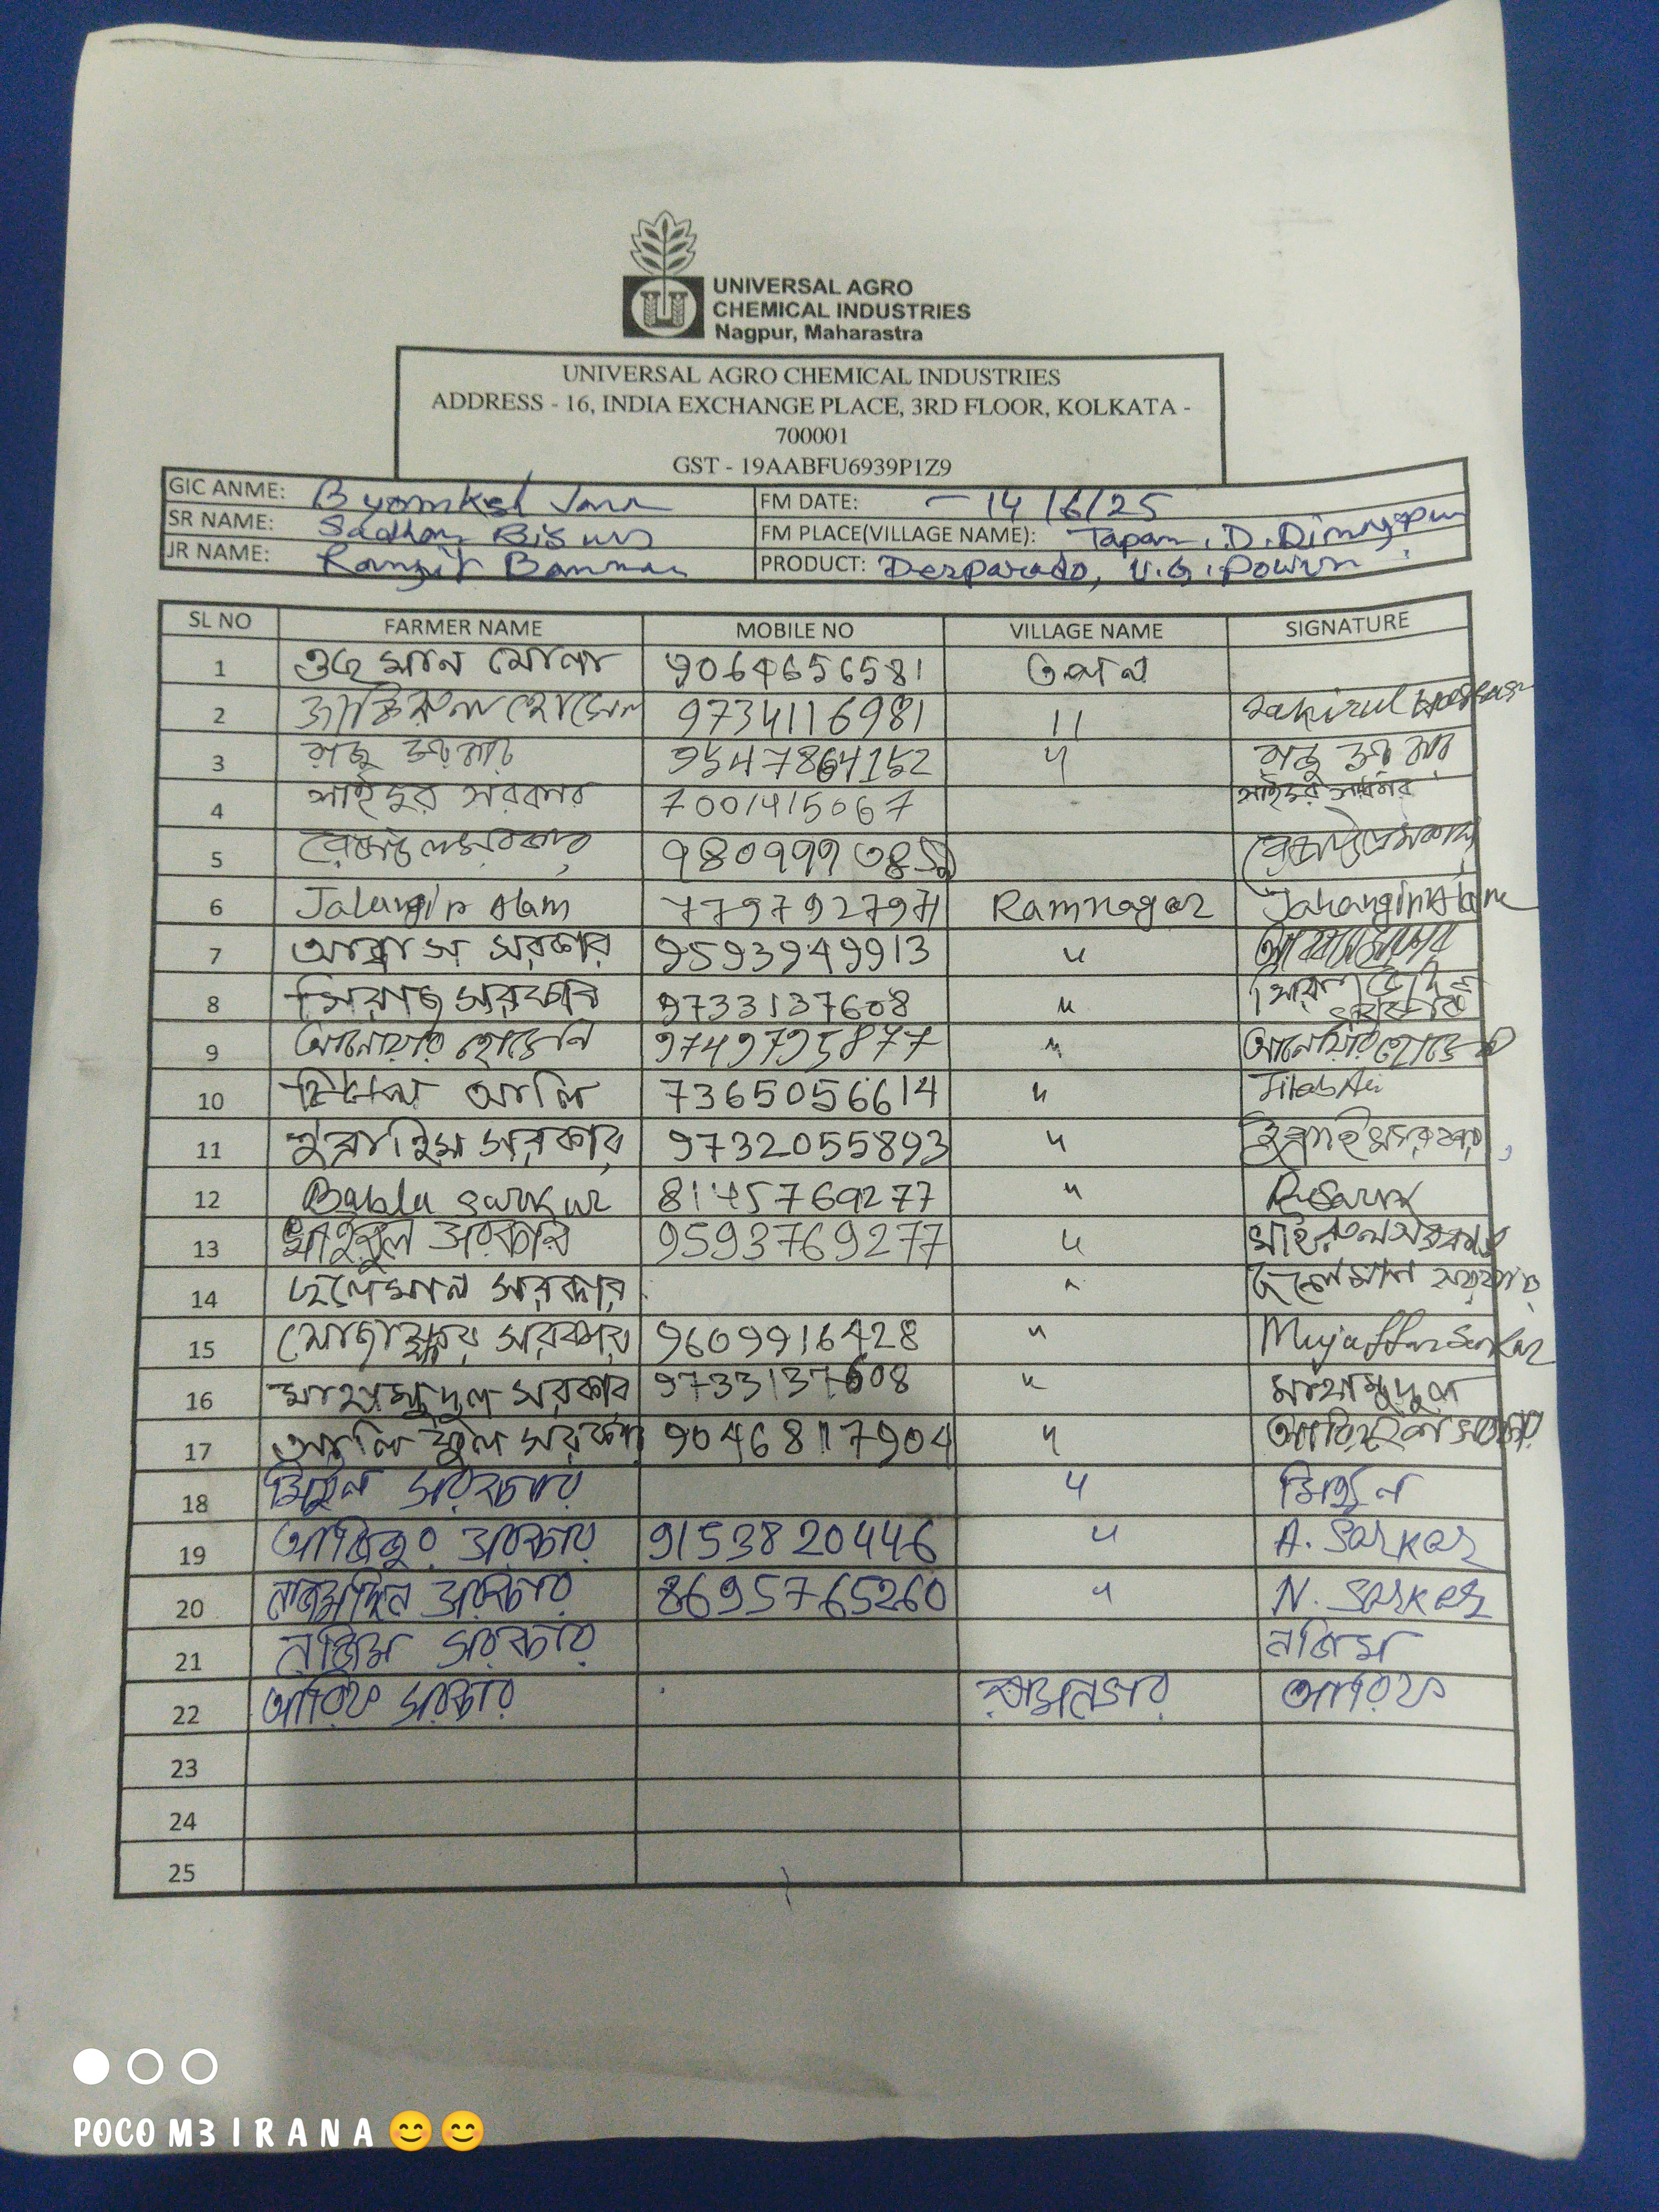 UNIVERSAL AGRO
CHEMICAL INDUSTRIES
Nagpur, Maharastra
UNIVERSAL AGRO CHEMICAL INDUSTRIES
ADDRESS - 16, INDIA EXCHANGE PLACE, 3RD FLOOR, KOLKATA -
700001
GST - 19AABFU6939P1Z9
GIC ANME: FM DATE: - 14/6/25
SR NAME: Sadhan Biswas FM PLACE(VILLAGE NAME): Tapan, D. Dinajpur
JR NAME: Ranjit Barman PRODUCT: Desparado, U.G. Power
SL NO FARMER NAME MOBILE NO VILLAGE NAME SIGNATURE
1 9064656581 তপন
2 জাকিরুল হোসেন 9734116981 11 Jakirul
3 9547864152 "
4 সাইদুর সরকার 7001415067 সাইদুর সরকার
5
6 Jahangir Alam 7797927971 Ramnagar Jahangir Alam
7 আব্বাস সরকার 9593949913 "
8 সিরাজ সরকার 9733137608 "
9 আনোয়ার হোসেন 9749795877 " আনোয়ার হোসেন
10 আলি 7365056614 "
11 ইব্রাহিম সরকার 9732055893 "
12 Babla Sarkar 8145769277 "
13 সরকার 9593769277 "
14 ছলেমান সরকার " ছলেমান সরকার
15 মোজাফ্ফর সরকার 9609916428 " Mujaffar Sarkar
16 মাহামুদুল সরকার 9733137608 " মাহামুদুল
17 সরকার 9046817904 "
18 মিঠুন সরকার " মিঠুন
19 আজিজুর সরকার 9153820446 " A. Sarkar
20 সরকার 8695765260 " N. Sarkar
21 নাজিম সরকার নাজিম
22 আরিফ সরকার রামনগর আরিফ
23
24
25
POCO M3 I R A N A 😊😊